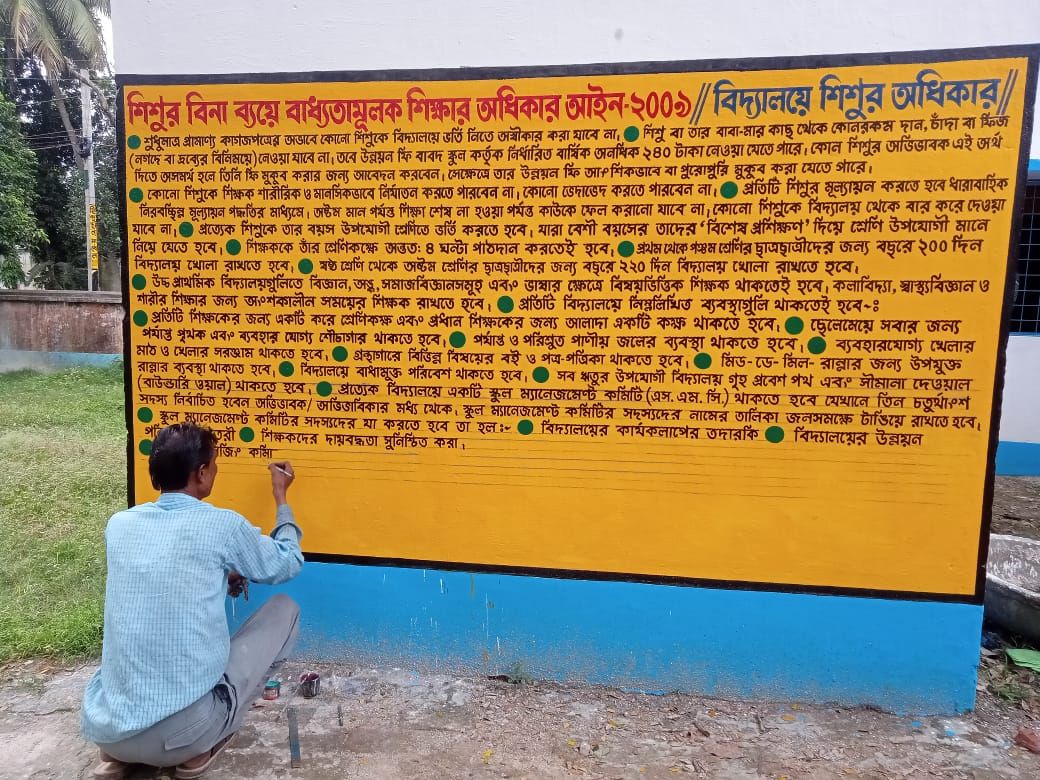 শিশুর বিনা ব্যয়ে বাধ্যতামূলক শিক্ষার অধিকার আইন-২০০৯ // বিদ্যালয়ে শিশুর অধিকার //
● শুধুমাত্র প্রামাণ্য কাগজপত্রের অভাবে কোনো শিশুকে বিদ্যালয়ে ভর্তি নিতে অস্বীকার করা যাবে না, ● শিশু বা তার বাবা-মার কাছ থেকে কোনরকম দান, চাঁদা বা ফিজ
(নগদে বা দ্রব্যের বিনিময়ে) নেওয়া যাবে না, তবে উন্নয়ন ফি বাবদ স্কুল কর্তৃক নির্ধারিত বার্ষিক অনধিক ২৪০ টাকা নেওয়া যেতে পারে, কোন শিশুর অভিভাবক এই অর্থ
দিতে অসমর্থ হলে তিনি ফি মুকুব করার জন্য আবেদন করবেন, সেক্ষেত্রে তার উন্নয়ন ফি আংশিকভাবে বা পুরোপুরি মুকুব করা যেতে পারে,
● কোনো শিশুকে শিক্ষক শারীরিক ও মানসিকভাবে নির্যাতন করতে পারবেন না, কোনো ভেদাভেদ করতে পারবেন না, ● প্রতিটি শিশুর মূল্যায়ন করতে হবে ধারাবাহিক
নিরবচ্ছিন্ন মূল্যায়ন পদ্ধতির মাধ্যমে, অষ্টম মান পর্যন্ত শিক্ষা শেষ না হওয়া পর্যন্ত কাউকে ফেল করানো যাবে না, কোনো শিশুকে বিদ্যালয় থেকে বার করে দেওয়া
যাবে না, ● প্রত্যেক শিশুকে তার বয়স উপযোগী শ্রেণিতে ভর্তি করতে হবে, যারা বেশী বয়সের তাদের 'বিশেষ প্রশিক্ষণ' দিয়ে শ্রেণি উপযোগী মানে
নিয়ে যেতে হবে, ● শিক্ষককে তাঁর শ্রেণিকক্ষে অন্ততঃ ৪ ঘন্টা পাঠদান করতেই হবে, ● প্রথম থেকে পঞ্চম শ্রেণির ছাত্রছাত্রীদের জন্য বছরে ২০০ দিন
বিদ্যালয় খোলা রাখতে হবে, ● ষষ্ঠ শ্রেণি থেকে অষ্টম শ্রেণির ছাত্রছাত্রীদের জন্য বছরে ২২০ দিন বিদ্যালয় খোলা রাখতে হবে,
● উচ্চ প্রাথমিক বিদ্যালয়গুলিতে বিজ্ঞান, অঙ্ক, সমাজবিজ্ঞানসমূহ এবং ভাষার ক্ষেত্রে বিষয়ভিত্তিক শিক্ষক থাকতেই হবে, কলাবিদ্যা, স্বাস্থ্যবিজ্ঞান ও
শারীর শিক্ষার জন্য অংশকালীন সময়ের শিক্ষক রাখতে হবে, ● প্রতিটি বিদ্যালয়ে নিম্নলিখিত ব্যবস্থাগুলি থাকতেই হবে-ঃ
● প্রতিটি শিক্ষকের জন্য একটি করে শ্রেণিকক্ষ এবং প্রধান শিক্ষকের জন্য আলাদা একটি কক্ষ থাকতে হবে, ● ছেলেমেয়ে সবার জন্য
পর্যাপ্ত পৃথক এবং ব্যবহার যোগ্য শৌচাগার থাকতে হবে, ● পর্যাপ্ত ও পরিশ্রুত পানীয় জলের ব্যবস্থা থাকতে হবে, ● ব্যবহারযোগ্য খেলার
মাঠ ও খেলার সরঞ্জাম থাকতে হবে, ● গ্রন্থাগারে বিভিন্ন বিষয়ের বই ও পত্র-পত্রিকা থাকতে হবে, ● মিড-ডে-মিল-রান্নার জন্য উপযুক্ত
রান্নার ব্যবস্থা থাকতে হবে, ● বিদ্যালয়ে বাধামুক্ত পরিবেশ থাকতে হবে, ● সব ঋতুর উপযোগী বিদ্যালয় গৃহ প্রবেশ পথ এবং সীমানা দেওয়াল
(বাউন্ডারি ওয়াল) থাকতে হবে, ● প্রত্যেক বিদ্যালয়ে একটি স্কুল ম্যানেজমেন্ট কমিটি (এস. এম. সি.) থাকতে হবে যেখানে তিন চতুর্থাংশ
সদস্য নির্বাচিত হবেন অভিভাবক/ অভিভাবিকার মধ্য থেকে, স্কুল ম্যানেজমেন্ট কমিটির সদস্যদের নামের তালিকা জনসমক্ষে টাঙিয়ে রাখতে হবে,
● স্কুল ম্যানেজমেন্ট কমিটির সদস্যদের যা করতে হবে তা হল:- ● বিদ্যালয়ের কার্যকলাপের তদারকি ● বিদ্যালয়ের উন্নয়ন
● শিক্ষকদের দায়বদ্ধতা সুনিশ্চিত করা,